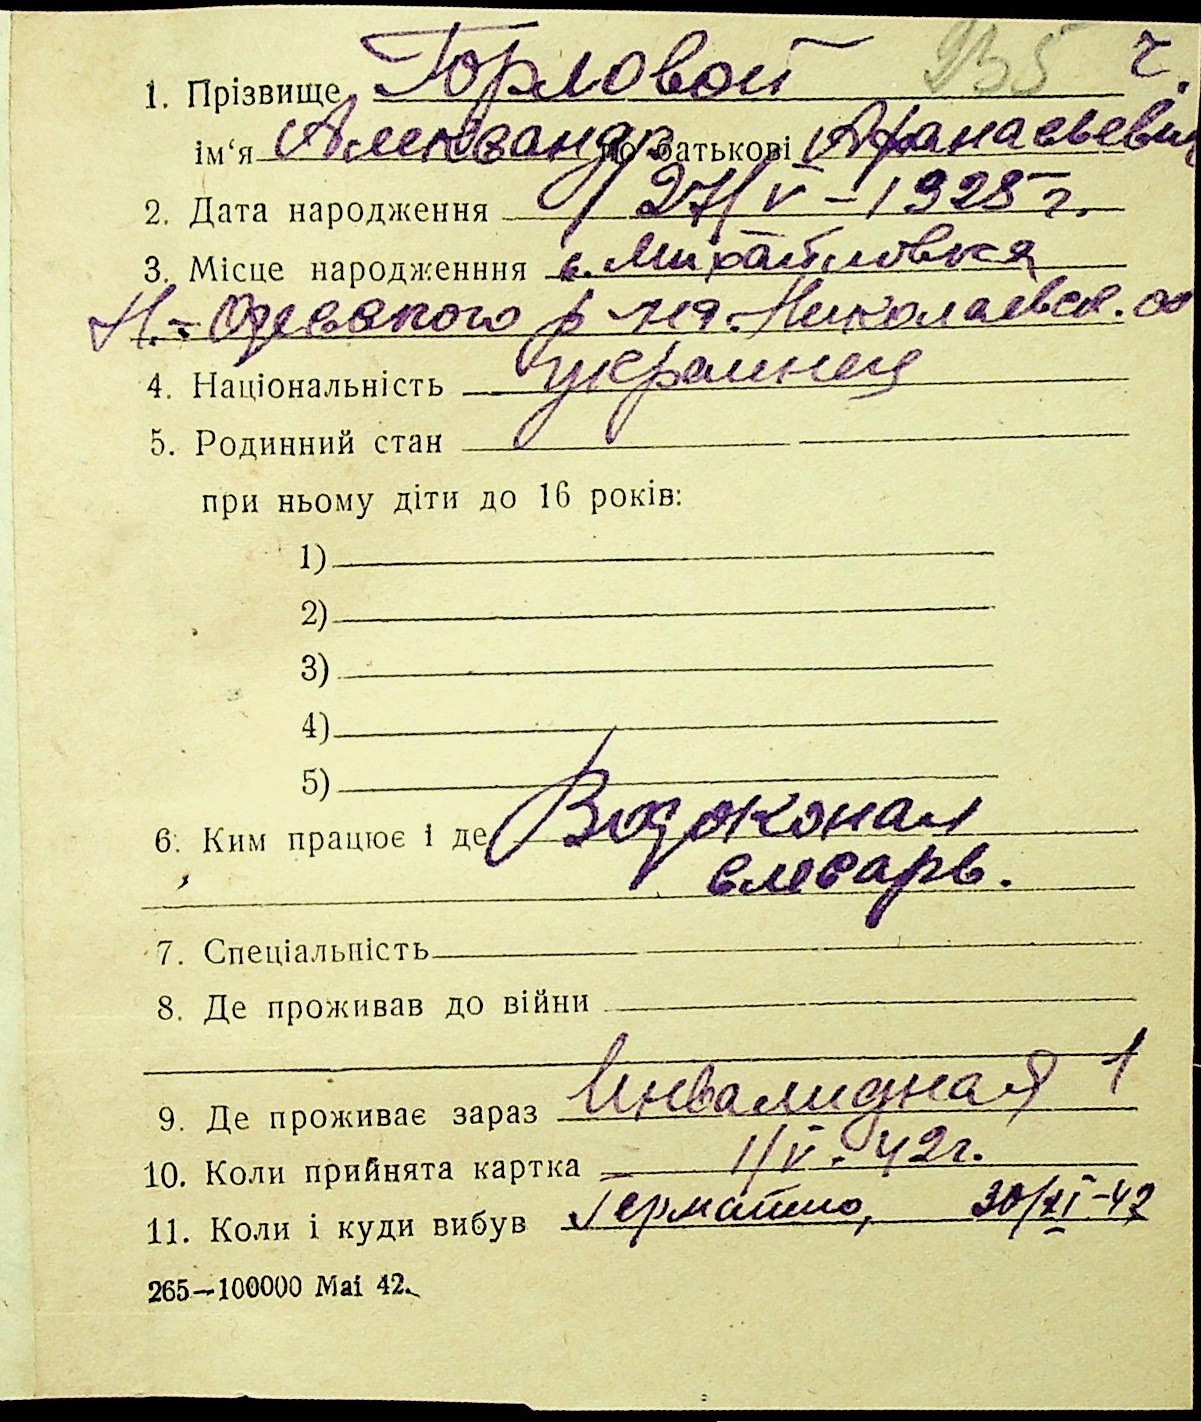 1. Прізвище Горловой 235 г.
ім‘я Александр по батькові Афанасьевич
2. Дата народження 27/V – 1925 г.
3. Місце народженння с. Михайловка
Н.-Одесского р-на Николаевск. об
4. Національність украинец
5. Родинний стан
при ньому діти до 16 років:
1)
2)
3)
4)
5)
6. Ким працює і де Водоконал
слесарь.
7. Спеціальність
8. Де проживав до війни
9. Де проживає зараз Инвалидная 1
10. Коли прийнята картка 1/V. 42г.
11. Коли і куди вибув Германию, 30/XI–42
265—100000 Mai 42.